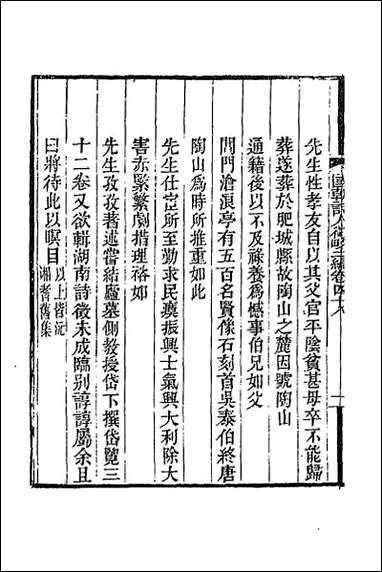 國朝詩人徵略二編卷四十八
先生性孝友自以其父官平陰貧甚毋卒不能歸
葬遂葬於肥城縣故陶山之麓因號陶山
通籍後以不及祿養爲憾事伯兄如父
閶門滄浪亭有五百名賢像石刻首吳泰伯終唐
陶山爲時所推重如此
先生仕宦所至勤求民瘼振興士氣興大利除大
害赤緊繁劇措理裕如
先生孜孜著述嘗結廬墓側敎授岱下撰岱覽三
十二卷又欲輯湖南詩徵未成臨別諄諄屬余且
曰將待此以暝目以上皆沅湘耆舊集